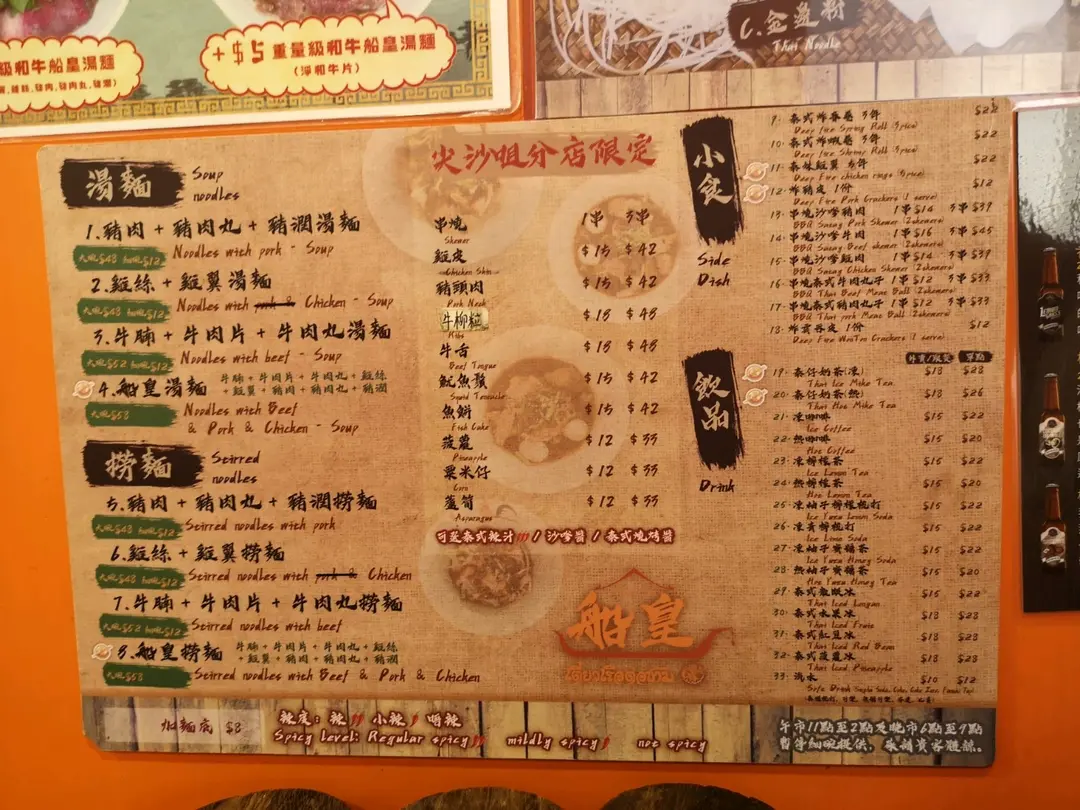 級和牛船皇湯麵
+$5 重量級和牛船皇湯麵
(淨和牛片)
C.金邊粉
Thai Noodle
湯麵
Soup
noodles
1.豬肉 + 豬肉丸 + 豬潤湯麵
Noodles with pork - Soup
2.雞絲 + 雞翼湯麵
Noodles with pork & Chicken - Soup
3.牛腩 + 牛肉片 + 牛肉丸湯麵
Noodles with beef - Soup
4.船皇湯麵
牛腩 + 牛肉片 + 牛肉丸 + 雞絲
+ 雞翼 + 豬肉 + 豬肉丸 + 豬潤
大碗$58
Noodles with Beef
& Pork & Chicken - Soup
撈麵
Stirred
noodles
5.豬肉 + 豬肉丸 + 豬潤撈麵
Stirred noodles with pork
6.雞絲 + 雞翼撈麵
Stirred noodles with pork & Chicken
7.牛腩 + 牛肉片 + 牛肉丸撈麵
Stirred noodles with beef
8.船皇撈麵
牛腩 + 牛肉片 + 牛肉丸 + 雞絲
+ 雞翼 + 豬肉 + 豬肉丸 + 豬潤
大碗$58
Stirred noodles with Beef & Pork & Chicken
尖沙咀分店限定
串燒 1串 3串
Skewer
雞皮 $15 $42
Chicken Skin
豬頸肉 $15 $42
Pork Neck
牛柳粒 $18 $48
牛舌 $18 $48
Beef Tongue
魷魚鬚 $15 $42
Squid Tentacle
魚餅 $15 $42
Fish Cake
菠蘿 $12 $33
Pineapple
粟米仔 $12 $33
Corn
蘆筍 $12 $33
Asparagus
可蘸泰式辣汁 / 沙嗲醬 / 泰式燒烤醬
船皇
小食
Side
Dish
9. 泰式炸春卷 3件 $22
Deep Fire Spring Roll (3pice)
10. 泰式炸蝦卷 3件 $22
Deep Fire Shrimp Roll (3pice)
11. 泰妹雞翼 5件 $22
12. 炸豬皮 1份 $12
Deep Fire Pork Crackers (1 serve)
13. 串燒沙嗲豬肉 1串$14 3串$39
BBQ Satay Pork Skewer (2skewers)
14. 串燒沙嗲牛肉 1串$16 3串$45
BBQ Satay Beef skewer (2skewers)
15. 串燒沙嗲雞肉 1串$14 3串$39
BBQ Satay Chicken Skewer (2skewers)
16. 串燒泰式牛肉丸子 1串$12 3串$33
BBQ Thai Beef Meat Ball (2skewers)
17. 串燒泰式豬肉丸子 1串$12 3串$33
BBQ Thai pork Meat Ball (2skewers)
18. 炸雲吞皮 1份 $12
Deep Fire WonTon Crackers (1 serve)
飲品
Drink
單點
19. 泰仔奶茶(凍) $18 $28
Thai Ice Milk Tea
20. 泰仔奶茶(熱) $18 $26
Thai Hot Milk Tea
21. 凍咖啡 $15 $22
Ice Coffee
22. 熱咖啡 $15 $20
Hot Coffee
23. 凍檸檬茶 $15 $22
Ice Lemon Tea
24. 熱檸檬茶 $15 $20
Hot Lemon Tea
25. 凍柚子檸檬梳打 $15 $22
Ice Yuzu Lemon Soda
26. 凍青檸梳打 $15 $22
Ice Lime Soda
27. 凍柚子蜜糖茶 $15 $22
Ice Yuzu Honey Soda
28. 熱柚子蜜糖茶 $15 $20
Hot Yuzu Honey Tea
29. 泰式龍眼冰 $15 $22
Thai Iced Longan
30. 泰式水果冰 $18 $28
Thai Iced Fruit
31. 泰式紅豆冰 $18 $28
Thai Iced Red Bean
32. 泰式菠蘿冰 $18 $28
Thai Iced Pineapple
33. 汽水 $10 $12
加麵底 $8
辣度: 辣 小辣 唔辣
Spicy Level: Regular spicy mildly spicy not spicy
午市11點至2點及晚市6點至9點
暫停細碗提供，敬請貴客體諒。